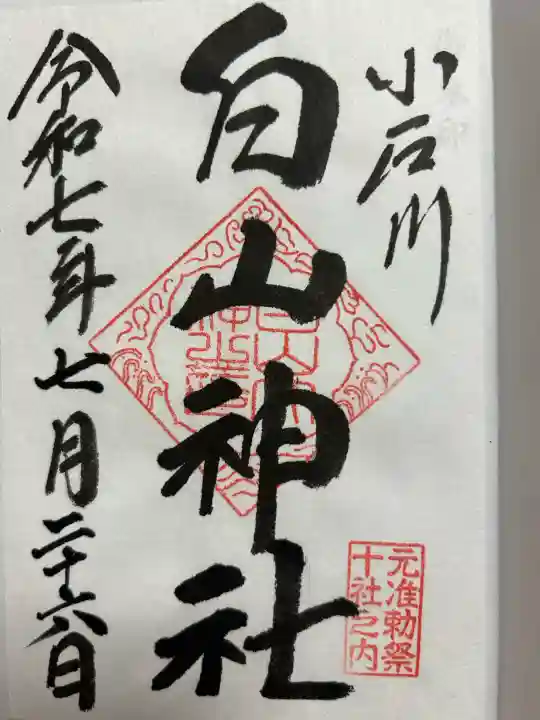 小石川
白山神社
元准勅祭
十社之内
令和七年七月二十六日